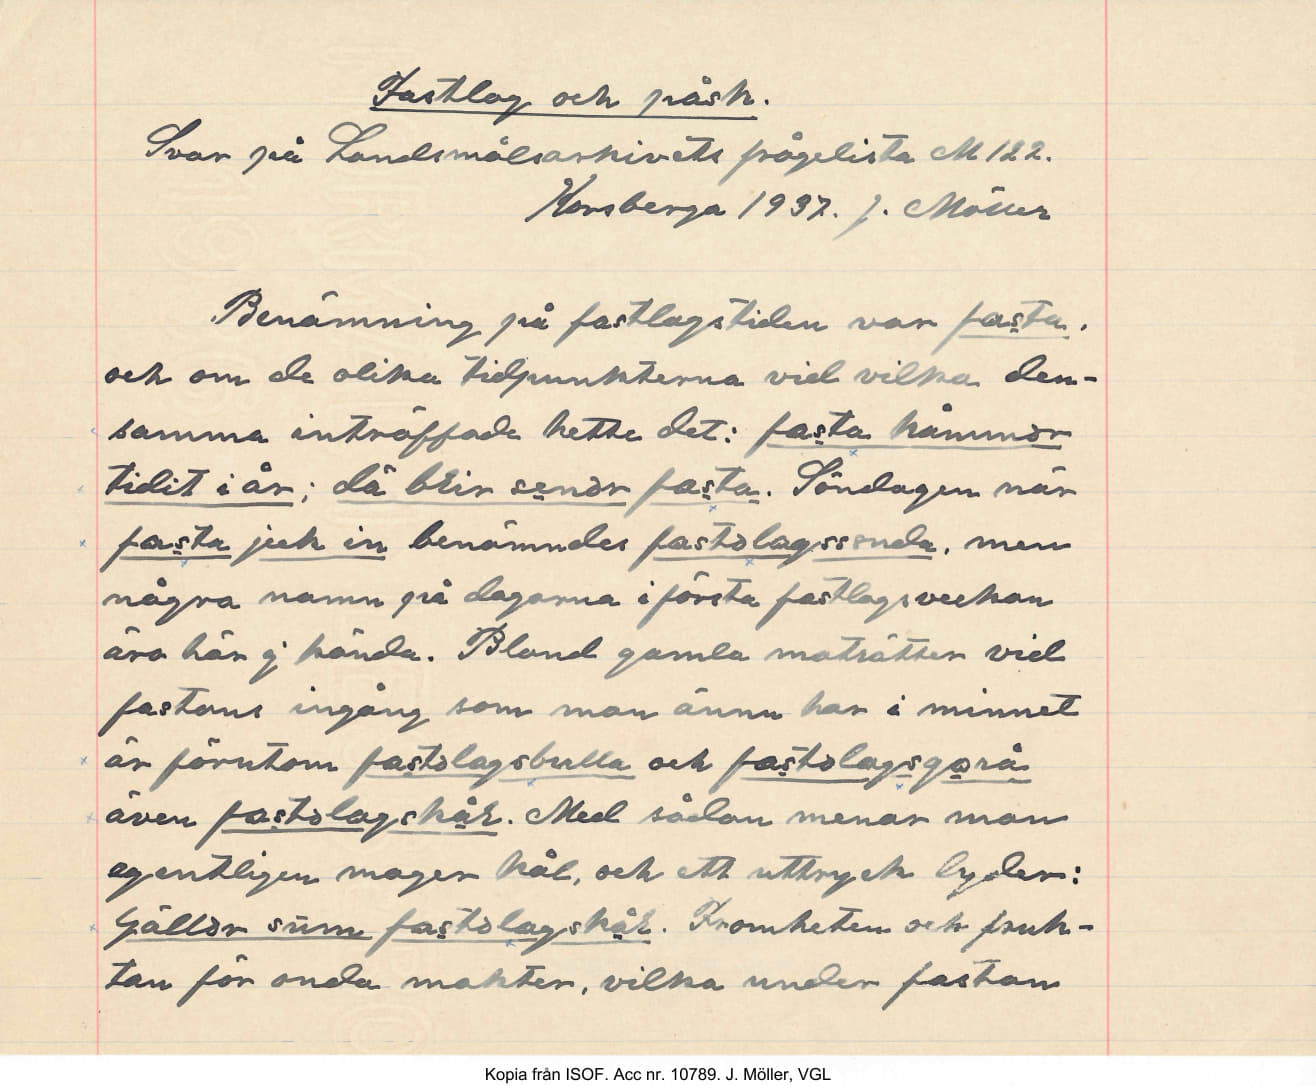 Fastlag och påsk.
Svar på Landsmålsarkivets frågelista M 122.
Korsberga 1937. J. Möller
Benämning på fastlagstiden var fasta,
och om de olika tidpunkterna vid vilka den-
samma inträffade hette det: fasta kåmmər
tidit i år; dä bLir senər fasta. Söndagen när
fasta jeck in benämndes fastəlagssunda, men
några namn på dagarna i första fastlagsveckan
äro här ej kända. Bland gamla maträtter vid
fastans ingång som man ännu har i minnet
är förutom fastəlagsbulla och fastəlagsgörå
även fastəlagskåL. Med sådan menar man
egentligen mager kål, och ett uttryck lyder:
Gällər sum fastəlagskåL. Fromheten och fruk-
tan för onda makter, vilka under fastan
Kopia från ISOF. Acc nr. 10789. J. Möller, VGL